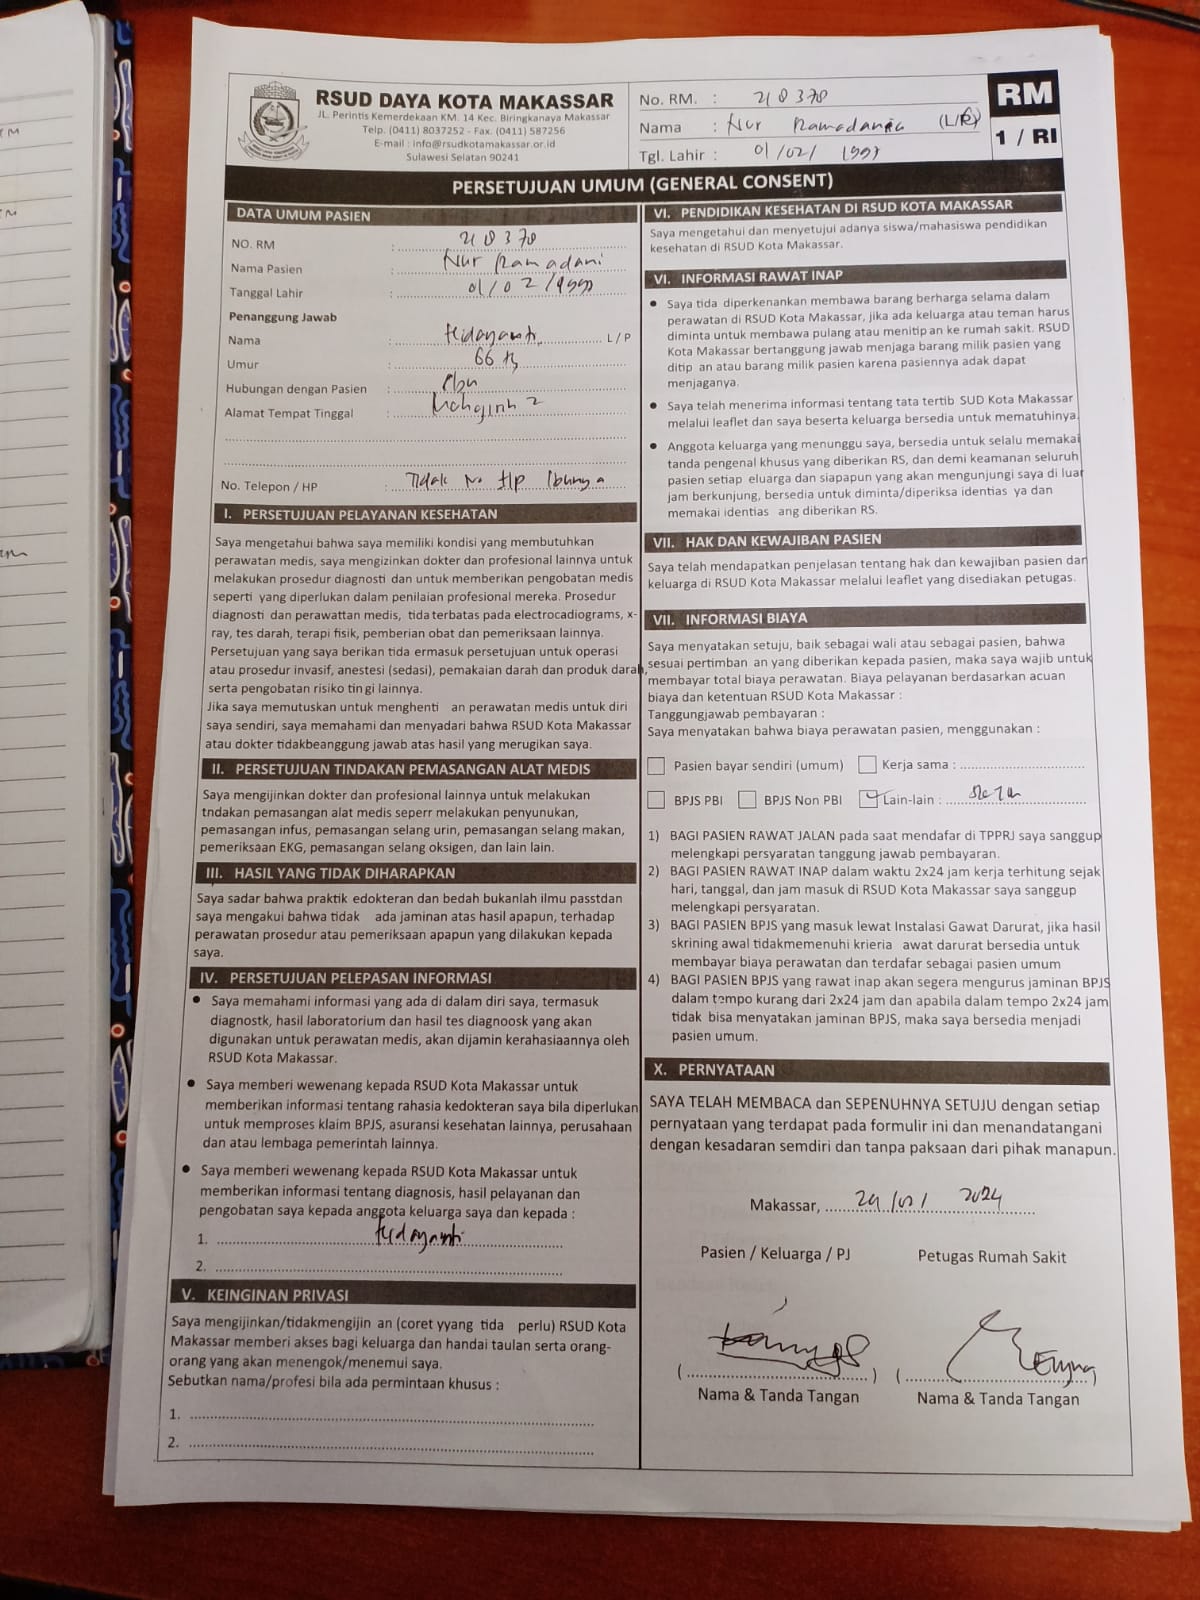 RSUD DAYA KOTA MAKASSAR
JL. Perintis Kemerdekaan KM. 14 Kec. Biringkanaya Makassar
Telp. (0411) 8037252 - Fax. (0411) 587256
E-mail : info@rsudkotamakassar.or.id
Sulawesi Selatan 90241
No. RM. : 218378
Nama : Nur Ramadania (L/P)
Tgl. Lahir : 01/02/
RM
1 / RI
PERSETUJUAN UMUM (GENERAL CONSENT)
DATA UMUM PASIEN
NO. RM : 218378
Nama Pasien : Nur Ramadani
Tanggal Lahir : 01/02/
Penanggung Jawab
Nama : Hidayanti L/P
Umur : 66
Hubungan dengan Pasien :
Alamat Tempat Tinggal :
No. Telepon / HP : Tidak No Hp Ibunya
I. PERSETUJUAN PELAYANAN KESEHATAN
Saya mengetahui bahwa saya memiliki kondisi yang membutuhkan
perawatan medis, saya mengizinkan dokter dan profesional lainnya untuk
melakukan prosedur diagnosti dan untuk memberikan pengobatan medis
seperti yang diperlukan dalam penilaian profesional mereka. Prosedur
diagnosti dan perawattan medis, tida terbatas pada electrocadiograms, x-
ray, tes darah, terapi fisik, pemberian obat dan pemeriksaan lainnya.
Persetujuan yang saya berikan tida ermasuk persetujuan untuk operasi
atau prosedur invasif, anestesi (sedasi), pemakaian darah dan produk darah,
serta pengobatan risiko tin gi lainnya.
Jika saya memutuskan untuk menghenti an perawatan medis untuk diri
saya sendiri, saya memahami dan menyadari bahwa RSUD Kota Makassar
atau dokter tidakbeanggung jawab atas hasil yang merugikan saya.
II. PERSETUJUAN TINDAKAN PEMASANGAN ALAT MEDIS
Saya mengijinkan dokter dan profesional lainnya untuk melakukan
tndakan pemasangan alat medis seperr melakukan penyunukan,
pemasangan infus, pemasangan selang urin, pemasangan selang makan,
pemeriksaan EKG, pemasangan selang oksigen, dan lain lain.
III. HASIL YANG TIDAK DIHARAPKAN
Saya sadar bahwa praktik edokteran dan bedah bukanlah ilmu passtdan
saya mengakui bahwa tidak ada jaminan atas hasil apapun, terhadap
perawatan prosedur atau pemeriksaan apapun yang dilakukan kepada
saya.
IV. PERSETUJUAN PELEPASAN INFORMASI
● Saya memahami informasi yang ada di dalam diri saya, termasuk
diagnostk, hasil laboratorium dan hasil tes diagnoosk yang akan
digunakan untuk perawatan medis, akan dijamin kerahasiaannya oleh
RSUD Kota Makassar.
● Saya memberi wewenang kepada RSUD Kota Makassar untuk
memberikan informasi tentang rahasia kedokteran saya bila diperlukan
untuk memproses klaim BPJS, asuransi kesehatan lainnya, perusahaan
dan atau lembaga pemerintah lainnya.
● Saya memberi wewenang kepada RSUD Kota Makassar untuk
memberikan informasi tentang diagnosis, hasil pelayanan dan
pengobatan saya kepada anggota keluarga saya dan kepada :
1. Hidayanti
2.
V. KEINGINAN PRIVASI
Saya mengijinkan/tidakmengijin an (coret yyang tida perlu) RSUD Kota
Makassar memberi akses bagi keluarga dan handai taulan serta orang-
orang yang akan menengok/menemui saya.
Sebutkan nama/profesi bila ada permintaan khusus :
1.
2.
VI. PENDIDIKAN KESEHATAN DI RSUD KOTA MAKASSAR
Saya mengetahui dan menyetujui adanya siswa/mahasiswa pendidikan
kesehatan di RSUD Kota Makassar.
VI. INFORMASI RAWAT INAP
● Saya tida diperkenankan membawa barang berharga selama dalam
perawatan di RSUD Kota Makassar, jika ada keluarga atau teman harus
diminta untuk membawa pulang atau menitip an ke rumah sakit. RSUD
Kota Makassar bertanggung jawab menjaga barang milik pasien yang
ditip an atau barang milik pasien karena pasiennya adak dapat
menjaganya.
● Saya telah menerima informasi tentang tata tertib SUD Kota Makassar
melalui leaflet dan saya beserta keluarga bersedia untuk mematuhinya.
● Anggota keluarga yang menunggu saya, bersedia untuk selalu memakai
tanda pengenal khusus yang diberikan RS, dan demi keamanan seluruh
pasien setiap eluarga dan siapapun yang akan mengunjungi saya di luar
jam berkunjung, bersedia untuk diminta/diperiksa identias ya dan
memakai identias ang diberikan RS.
VII. HAK DAN KEWAJIBAN PASIEN
Saya telah mendapatkan penjelasan tentang hak dan kewajiban pasien dan
keluarga di RSUD Kota Makassar melalui leaflet yang disediakan petugas.
VII. INFORMASI BIAYA
Saya menyatakan setuju, baik sebagai wali atau sebagai pasien, bahwa
sesuai pertimban an yang diberikan kepada pasien, maka saya wajib untuk
membayar total biaya perawatan. Biaya pelayanan berdasarkan acuan
biaya dan ketentuan RSUD Kota Makassar :
Tanggungjawab pembayaran :
Saya menyatakan bahwa biaya perawatan pasien, menggunakan :
Pasien bayar sendiri (umum) Kerja sama :
BPJS PBI BPJS Non PBI Lain-lain :
1) BAGI PASIEN RAWAT JALAN pada saat mendafar di TPPRJ saya sanggup
melengkapi persyaratan tanggung jawab pembayaran.
2) BAGI PASIEN RAWAT INAP dalam waktu 2x24 jam kerja terhitung sejak
hari, tanggal, dan jam masuk di RSUD Kota Makassar saya sanggup
melengkapi persyaratan.
3) BAGI PASIEN BPJS yang masuk lewat Instalasi Gawat Darurat, jika hasil
skrining awal tidakmemenuhi krieria awat darurat bersedia untuk
membayar biaya perawatan dan terdafar sebagai pasien umum
4) BAGI PASIEN BPJS yang rawat inap akan segera mengurus jaminan BPJS
dalam tempo kurang dari 2x24 jam dan apabila dalam tempo 2x24 jam
tidak bisa menyatakan jaminan BPJS, maka saya bersedia menjadi
pasien umum.
X. PERNYATAAN
SAYA TELAH MEMBACA dan SEPENUHNYA SETUJU dengan setiap
pernyataan yang terdapat pada formulir ini dan menandatangani
dengan kesadaran semdiri dan tanpa paksaan dari pihak manapun.
Makassar, 2024
Pasien / Keluarga / PJ Petugas Rumah Sakit
( ) ( )
Nama & Tanda Tangan Nama & Tanda Tangan